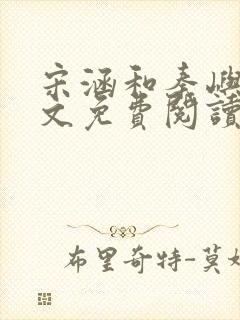 宋涵和秦嶼
文免費閱讀
布里奇特-莫